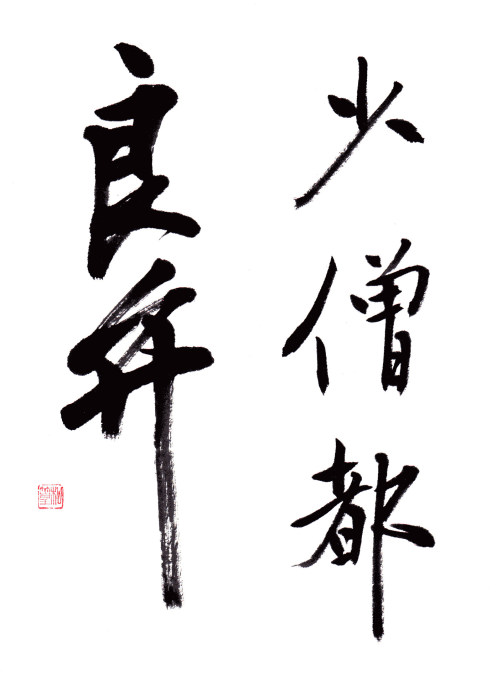 少僧都
良弁